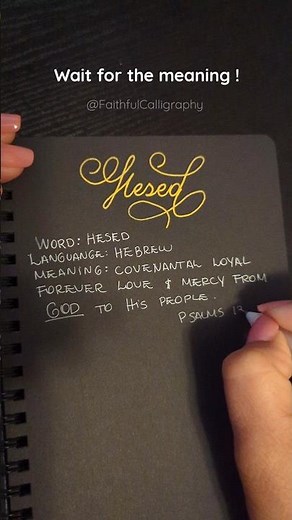 Wait for the meaning !
@FaithfulCalligraphy
Hesed
WORD: HESED
LANGUANGE: HEBREW
MEANING: COVENANTAL LOYAL
FOREVER LOVE & MERCY FROM
GOD TO HIS PEOPLE.
PSALMS 13